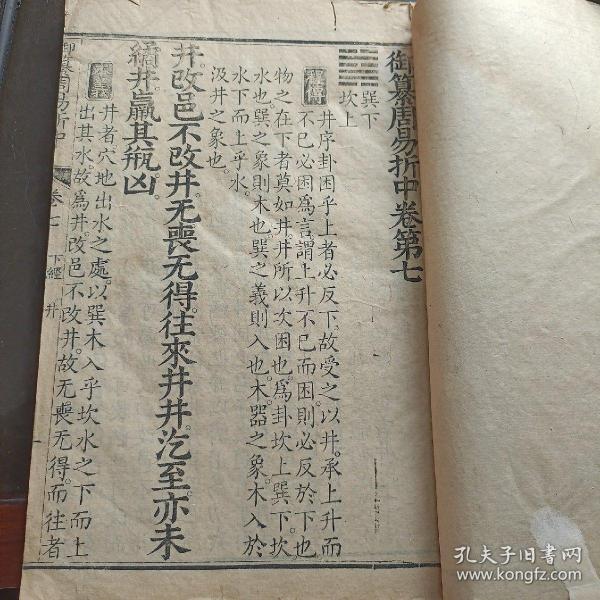 御纂周易折中卷第七
巽下
坎上
程傳
井序卦困乎上者必反下故受之以井承上升而
不已必困為言謂上升不已而困則必反於下也
物之在下者莫如井井所以次困也為卦坎上巽下坎
水也巽之象則木也巽之義則入也木器之象木入於
水下而上乎水
汲井之象也
井改邑不改井无喪无得往來井井汔至亦未
繘井羸其瓶凶
本義
井者穴地出水之處以巽木入乎坎水之下而上
出其水故為井改邑不改井故无喪无得而往者
御纂周易折中
卷七
下經
井
孔夫子旧书网
www.kongfz.com